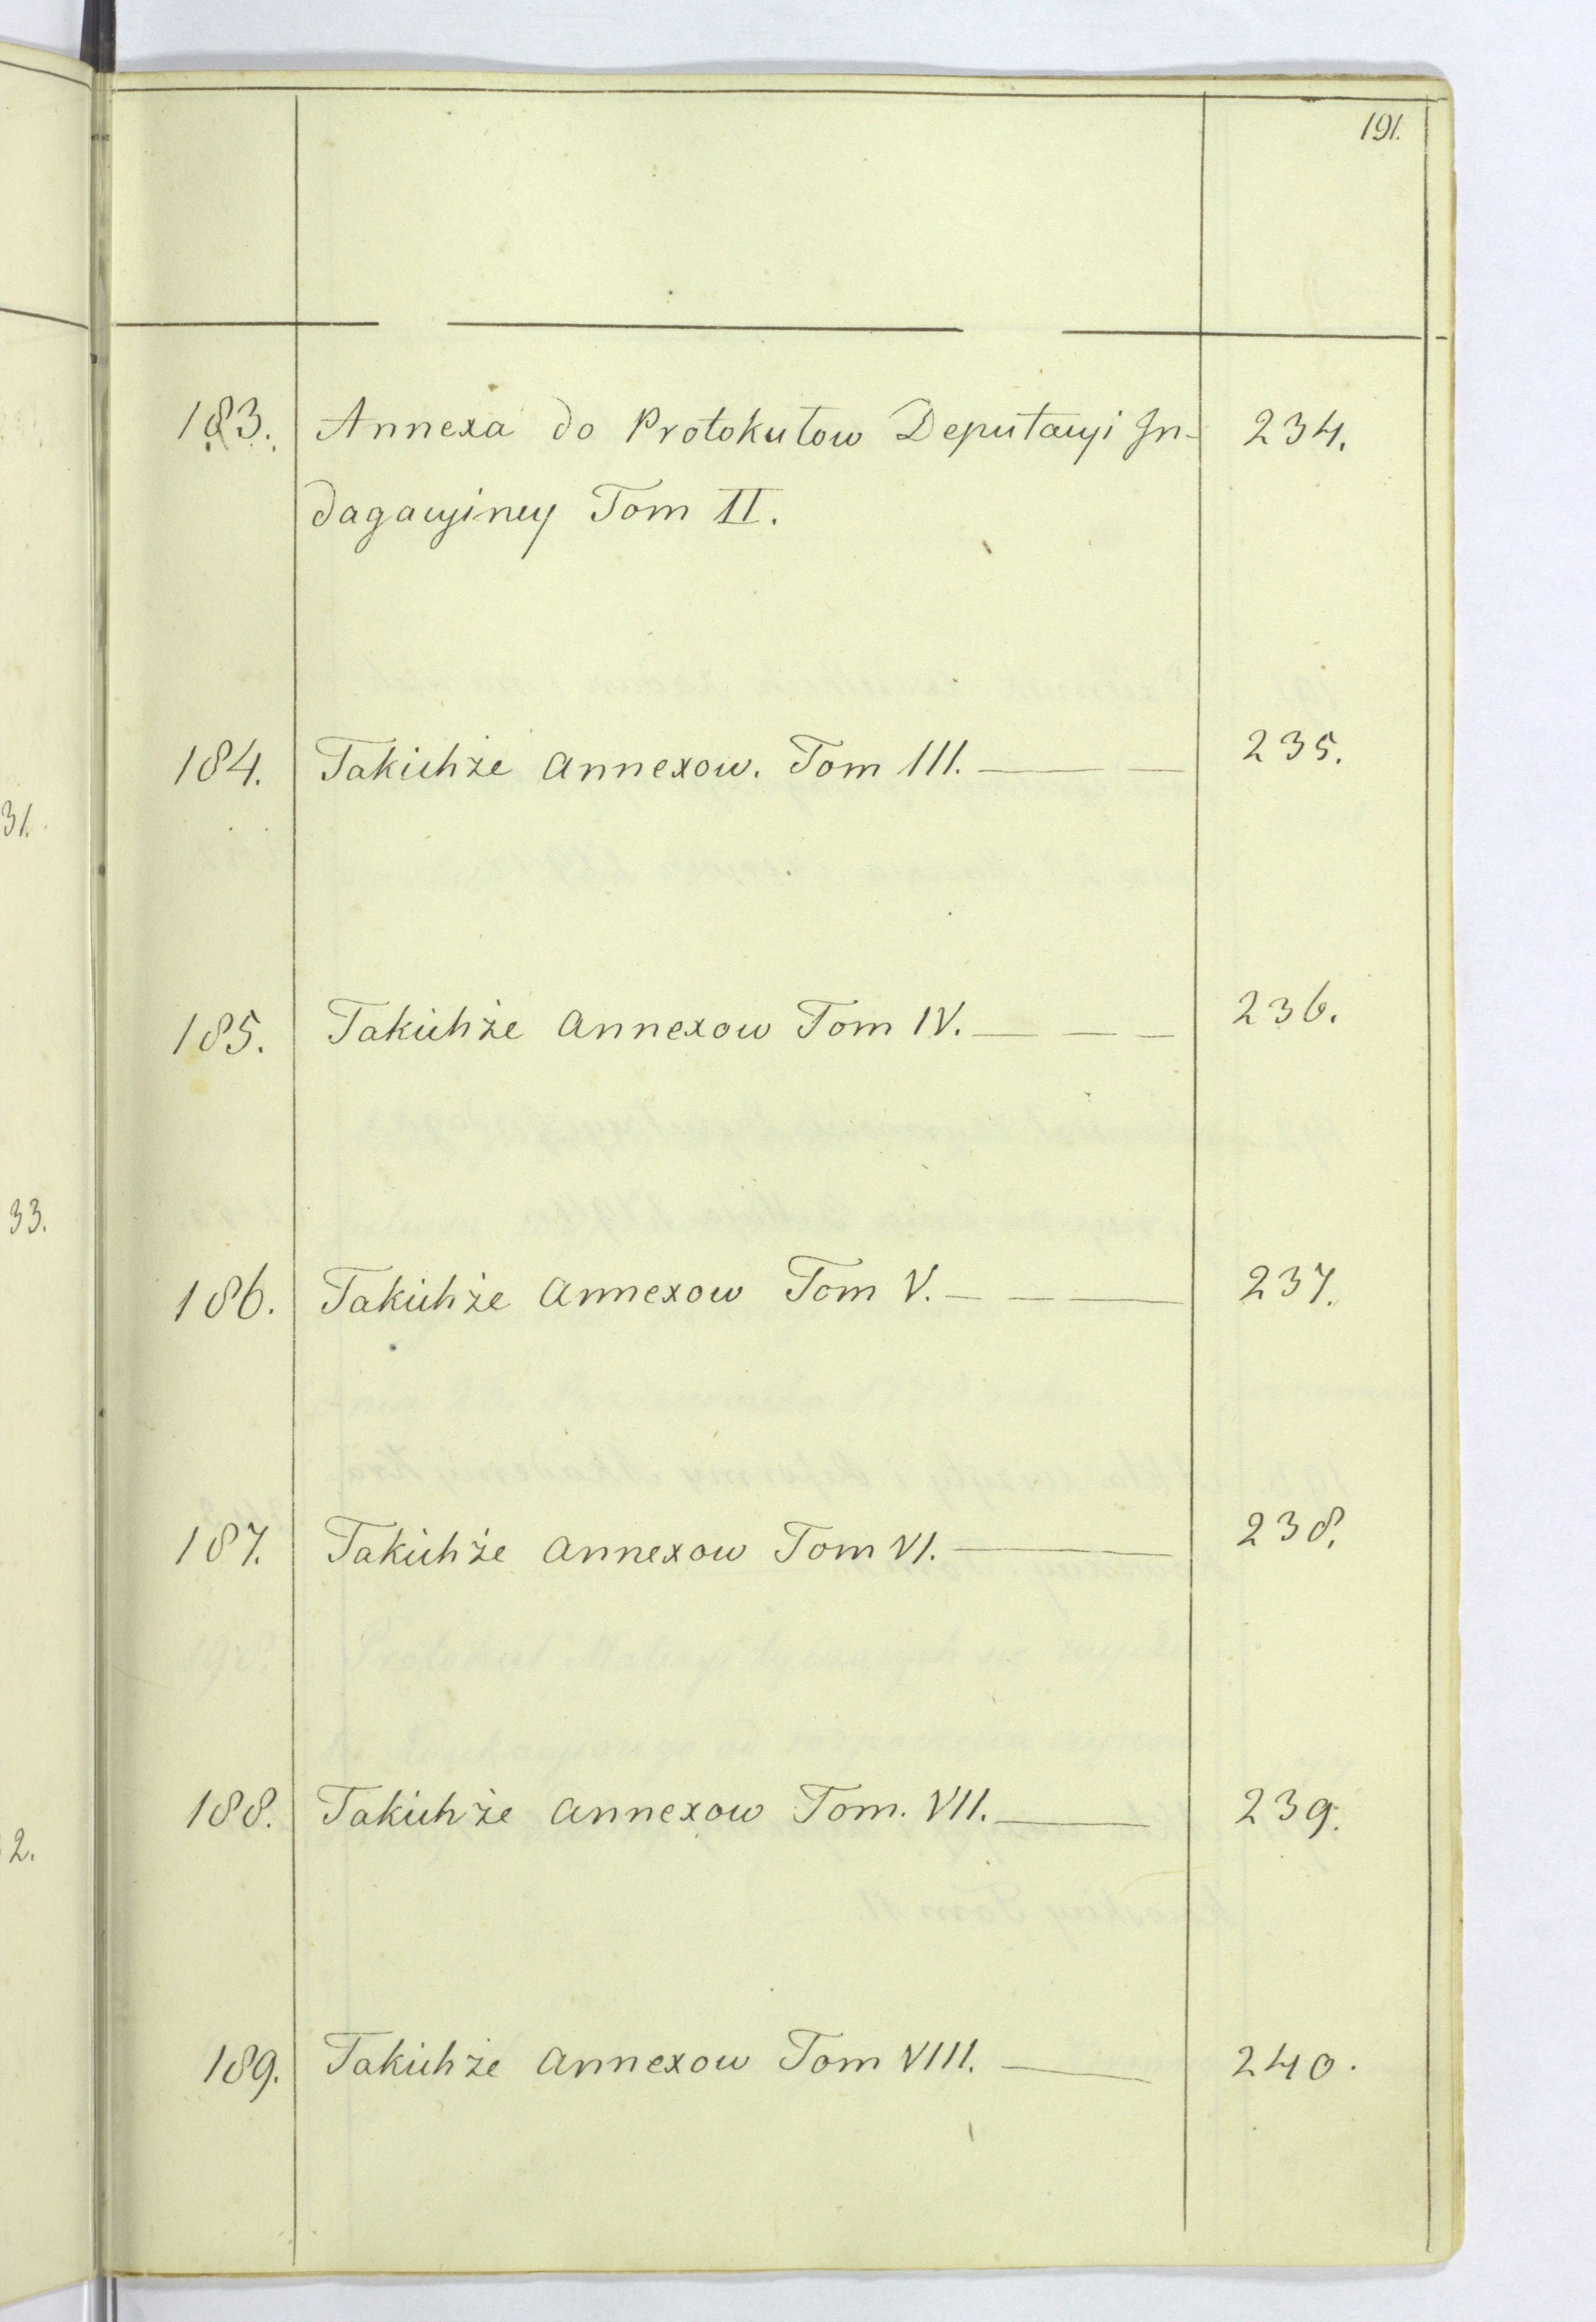 191.
183. Annexa do Protokułow Deputacyi In-
234.
dagacyiney Tom II.
184. Takichże annexow. Tom III. — — 235.
185. Takichże annexow Tom IV. — — — 236.
186. Takichże annexow Tom V. — — — 237.
187. Takichże annexow Tom VI. — 238.
188. Takichże annexow Tom. VII. — 239.
189. Takichże annexow Tom VIII. — 240.
31.
33.
2.